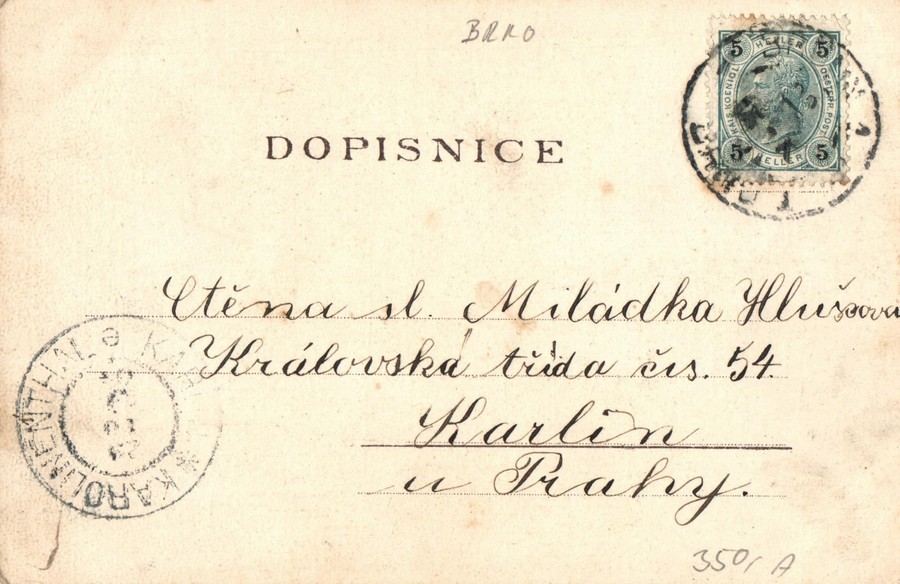 BRNO
5 HELLER 5
KAIS. KOENIGL. OESTERR. POST
5 HELLER 5
DOPISNICE
Ctěna sl. Miládka Hlušcova
Královská třída čis. 54.
Karlín
u Prahy.
KAROLINENTHAL
350,- A